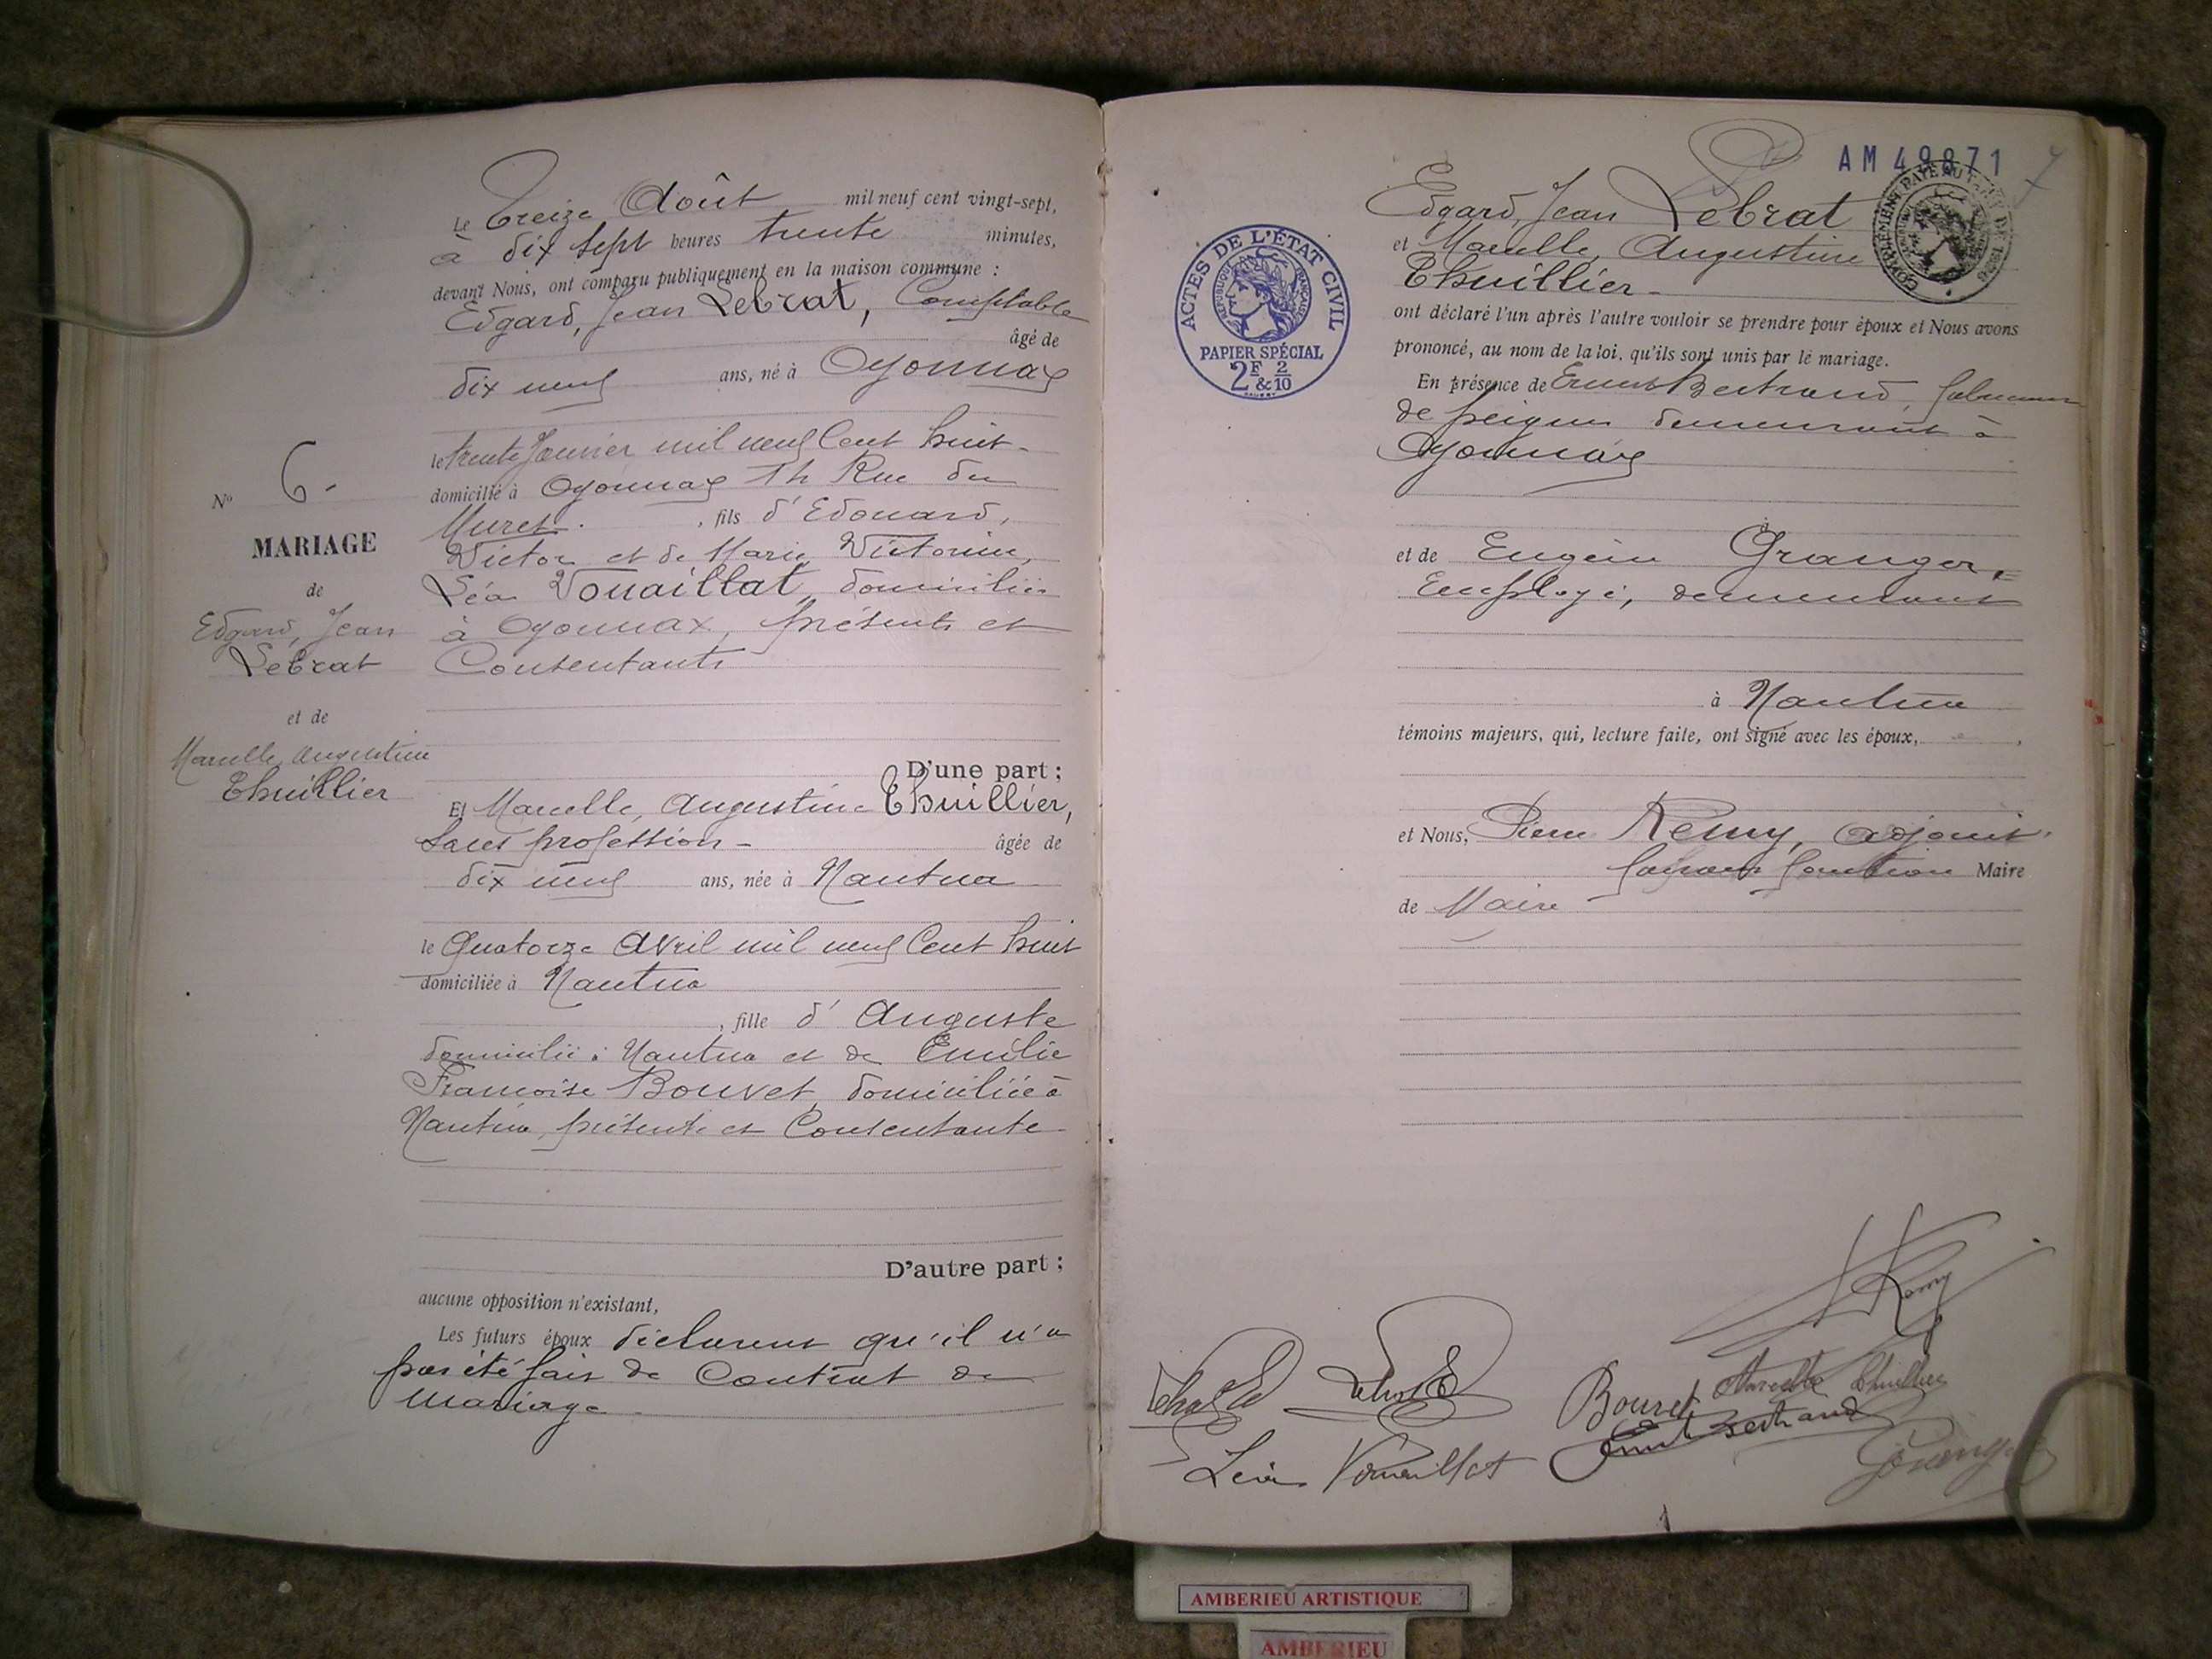 Le Treize Août mil neuf cent vingt-sept,
à dix sept heures trente minutes,
devant Nous, ont comparu publiquement en la maison commune :
Edgard, Jean Lebrat, Comptable
âgé de
dix neuf ans, né à Oyonnax
le trente Janvier mil neuf Cent huit
domicilié à Oyonnax Rue du
Muret. , fils d'Edouard,
Victor et de Marie, Victorine,
Léa Vouaillat, domiciliés
à Oyonnax, présents et
Consentants
D'une part ;
Et Marcelle, Augustine Thuillier,
Sans profession - âgée de
dix neuf ans, née à Nantua
le Quatorze Avril mil neuf Cent huit
domiciliée à Nantua
, fille d'Auguste
domicilié à Nantua et de Emilie
Françoise Bouvet, domiciliée à
Nantua, présente et Consentante
D'autre part ;
aucune opposition n'existant,
Les futurs époux déclarent qu'il n'a
pas été fait de Contrat de
Mariage
No 6.
MARIAGE
de
Edgard, Jean
Lebrat
et de
Marcelle, Augustine
Thuillier
AM 49871
7
Edgard, Jean Lebrat
et Marcelle, Augustine
Thuillier
ont déclaré l'un après l'autre vouloir se prendre pour époux et Nous avons
prononcé, au nom de la loi, qu'ils sont unis par le mariage.
En présence de Ernest Bertrand, fabricant
de peignes demeurant à
Oyonnax
et de Eugène Granger,
Employé, demeurant
à Nantua
témoins majeurs, qui, lecture faite, ont signé avec les époux,
et Nous, Pierre Remy, adjoint
faisant fonction Maire
de Maire
ACTES DE L'ÉTAT CIVIL
RÉPUBLIQUE FRANÇAISE
PAPIER SPÉCIAL
2F & 2/10
Remy
Bouvet Marcelle Thuillier
Ernest Bertrand
Léa Vouaillat
Granger
AMBERIEU ARTISTIQUE
AMBERIEU